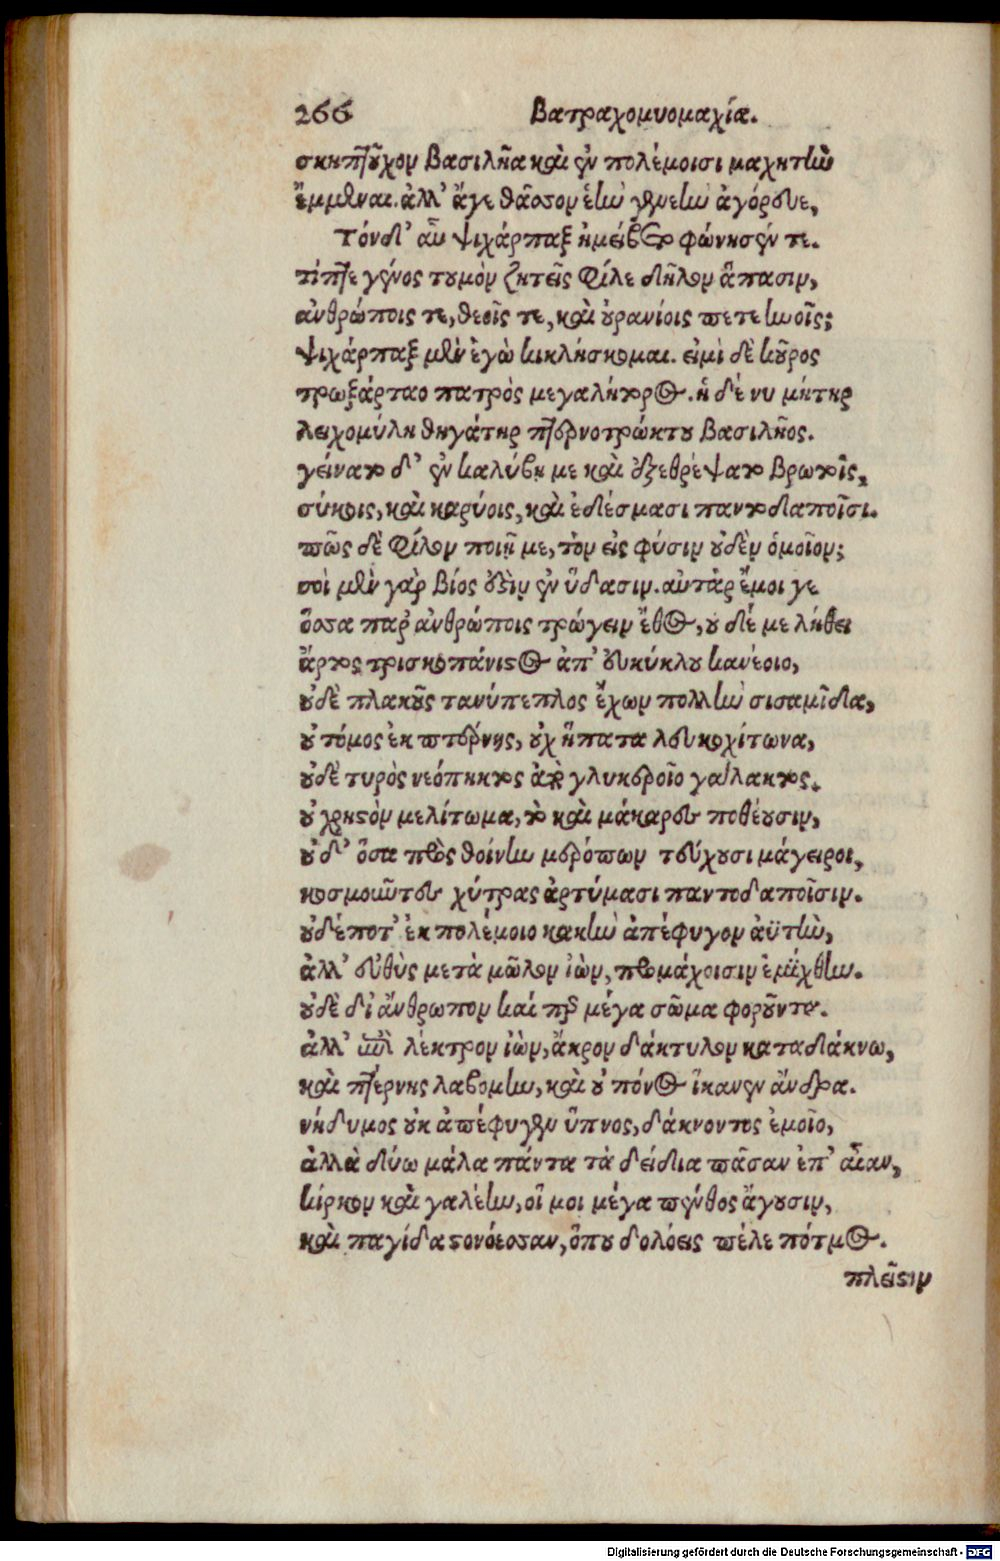 266 Βατραχομυομαχία.
σκηπτοῦχον βασιλῆα καὶ ἐν πολέμοισι μαχητὴν
ἔμμεναι. ἀλλ' ἄγε θᾶσσον ἑὴν γενεὴν ἀγόρευε,
Τόνδ' αὖ ψιχάρπαξ ἠμείβετο φώνησέν τε.
τίπτε γένος τουμὸν ζητεῖς φίλε δῆλον ἅπασιν,
ἀνθρώποις τε, θεοῖς τε, καὶ οὐρανίοις πετεηνοῖς;
ψιχάρπαξ μὲν ἐγὼ κικλήσκομαι. εἰμὶ δὲ κοῦρος
τρωξάρταο πατρὸς μεγαλήτορος. ἡ δέ νυ μήτηρ
λειχομύλη θηγάτηρ πτερνοτρώκτου βασιλῆος.
γείνατο δ' ἐν καλύβῃ με καὶ ἐξεθρέψατο βρωτοῖς,
σύκοις, καὶ καρύοις, καὶ ἐδέσμασι παντοδαποῖσι.
πῶς δὲ φίλον ποιῇ με, τὸν εἰς φύσιν οὐδὲν ὁμοῖον;
σοὶ μὲν γὰρ βίος ἐστὶν ἐν ὕδασιν. αὐτάρ ἔμοι γε
ὅσσα παρ' ἀνθρώποις τρώγειν ἔθος, οὐ δέ με λήθει
ἄρτος τρισκοπάνιστος ἀπ' εὐκύκλου κανέοιο,
οὐδὲ πλακοῦς τανύπεπλος ἔχων πολλὴν σισαμῖδα,
οὐ τόμος ἐκ πτέρνης, οὐχ ἥπατα λευκοχίτωνα,
οὐδὲ τυρὸς νεόπηκτος ἀπὸ γλυκεροῖο γάλακτος.
οὐ χρηστὸν μελίτωμα, τὸ καὶ μάκαρες ποθέουσιν,
οὐ δ' ὅσα πρὸς θοίνην μερόπων τεύχουσι μάγειροι,
κοσμοιῶντες χύτρας ἀρτύμασι παντοδαποῖσιν.
οὐδέποτ' ἐκ πολέμοιο κακὴν ἀπέφυγον ἀϋτὴν,
ἀλλ' εὐθὺς μετὰ μῶλον ἰὼν, προμάχοισιν ἐμίχθην.
οὐδὲ δί' ἄνθρωπον καί περ μέγα σῶμα φοροῦντα.
ἀλλ' ἐπὶ λέκτρον ἰὼν, ἄκρον δάκτυλον καταδάκνω,
καὶ πτέρνης λαβομην, καὶ οὐ πόνος ἵκανεν ἄνδρα.
νήδυμος οὐκ ἀπέφυγεν ὕπνος, δάκνοντος ἐμοῖο,
ἀλλὰ δύω μάλα πάντα τὰ δείδια πᾶσαν ἐπ' αἶαν,
κίρκον καὶ γαλέην, οἵ μοι μέγα πένθος ἄγουσιν,
καὶ παγίδα στονόεσσαν, ὅπου δολόεις πέλε πότμος.
πλεῖστν
Digitalisierung gefördert durch die Deutsche Forschungsgemeinschaft - DFG